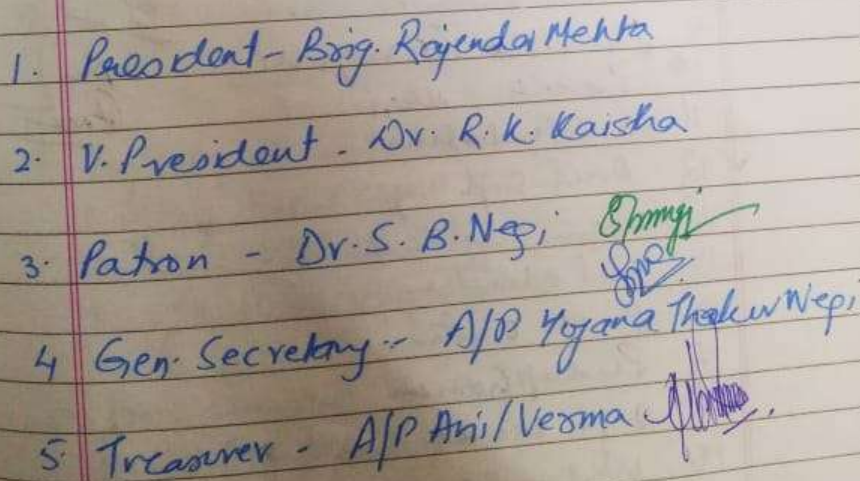 1. President - Brig. Rajender Mehta
2. V. President - Dr. R. K. Kaistha
3. Patron - Dr. S. B. Negi
4 Gen. Secretary - A/P Yojana Thakur Negi
5. Treasurer - A/P Anil Verma